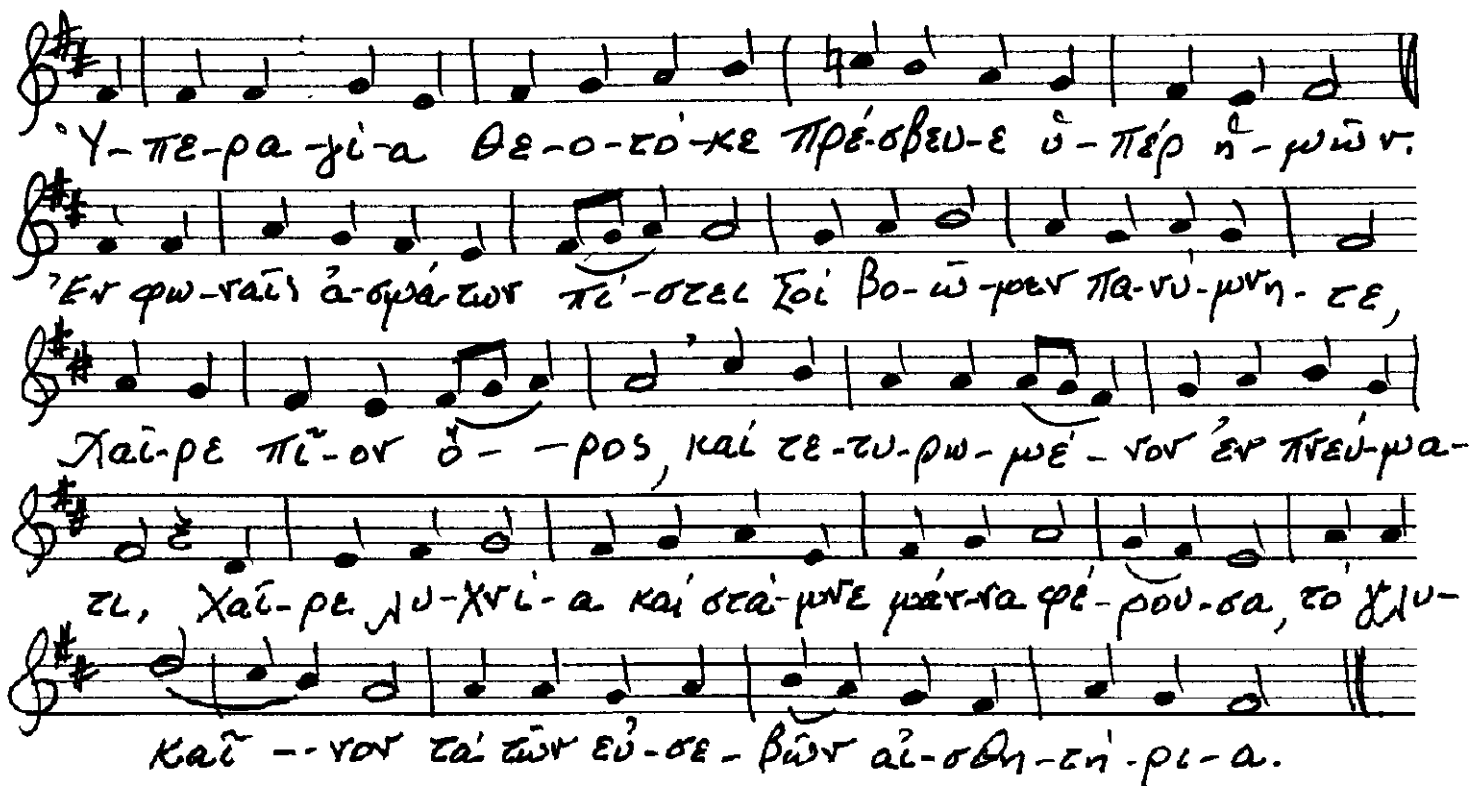 Ὑ-πε-ρα-γί-α Θε-ο-τό-κε πρέ-σβευ-ε ὑ-πέρ ἡ-μῶν.
Ἐν φω-ναῖς ᾀ-σμά-των πί-στει Σοί βο-ῶ-μεν πα-νύ-μνη-τε,
Χαῖ-ρε πῖ-ον ὄ--ρος, καί τε-τυ-ρω-μέ-νον ἐν πνεύ-μα-
τι, Χαῖ-ρε λυ-χνί-α καί στά-μνε μάν-να φέ-ρου-σα, τό γλυ-
καῖ--νον τά τῶν εὐ-σε-βῶν αἰ-σθη-τή-ρι-α.